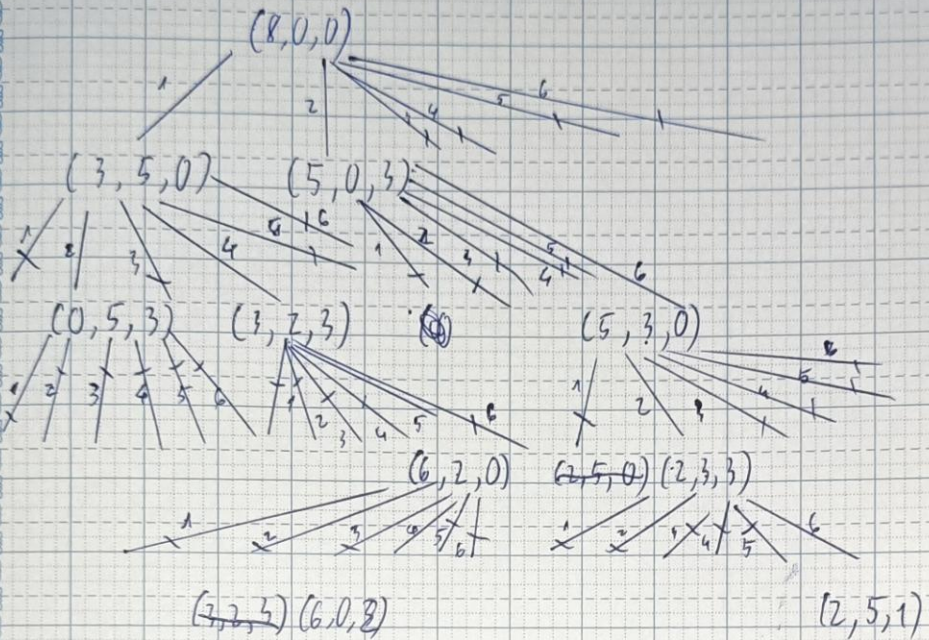 (8,0,0)
1 2 4 5 6
(3,5,0) (5,0,3)
1 2 3 4 5 6 1 2 3 4 5 6
(0,5,3) (3,2,3) (5,3,0)
1 2 3 4 5 6 1 2 3 4 5 6 1 2 3 4 5 6
(6,2,0) (2,5,0) (2,3,3)
1 2 3 4 5 6 1 2 3 4 5 6
(6,0,2) (2,5,1)